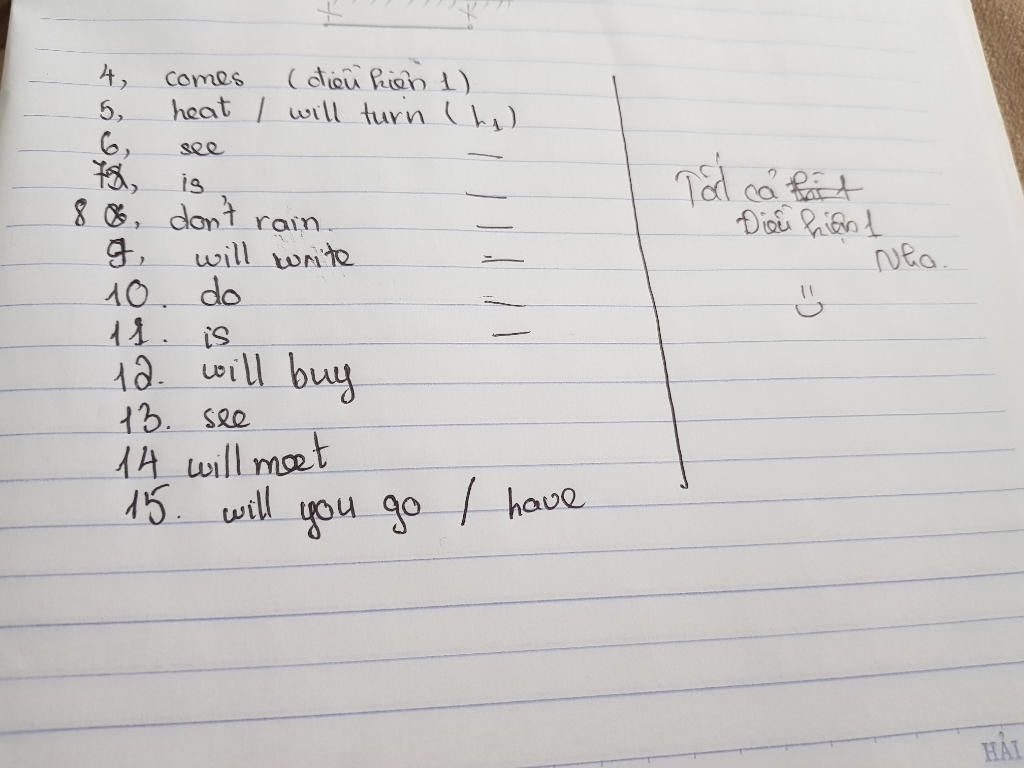 4, comes (điều kiện 1)
5, heat / will turn (k1)
6, see —
7, is —
8, don't rain. —
9, will write =
10. do =
11. is —
12. will buy
13. see
14 will meet
15. will you go / have
Tất cả
Điều kiện 1
Nha.
HẢI